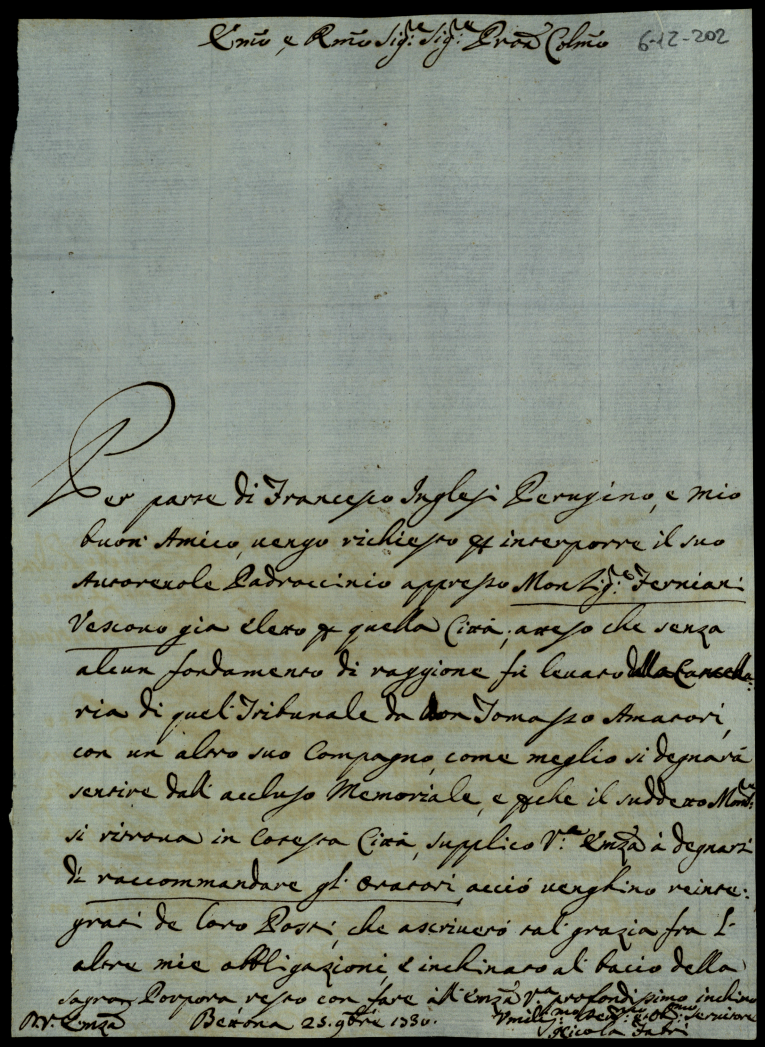 Emo e Rmo Sig.re Sig.re Pron Colmo 6-12-202
Per parte di Francesco Inglesi Perugino, e mio
buon' Amico, vengo richiesto p interporre il suo
Autorevole Padroccinio appresso Monsig.e Ferniani
Vescovo gia eletto p quella Città, atteso che senza
alcun fondamento di raggione fù levato dalla Cancella:
ria di quel' Tribunale da Don Tomasso Amatori,
con un altro suo Compagno, come meglio si degnarà
sentire dall' accluso Memoriale, e pche il suddetto Mons.re
si ritrova in Cotesta Città, supplico V.ra Emza à degnarsi
di raccommandare gl' Oratori, acciò venghino reinte:
grati de loro Posti, che ascriverò tal' grazia fra l'
altre mie obbligazioni, e inchinato al' bacio della
sagra Porpora resto con fare all' Emza V.ra profondissimo inchino
D. V. Emza Bettona 25. 9bre 1730. Umiliss.mo Dev.mo Obb.mo Servitore
Nicola Fabri